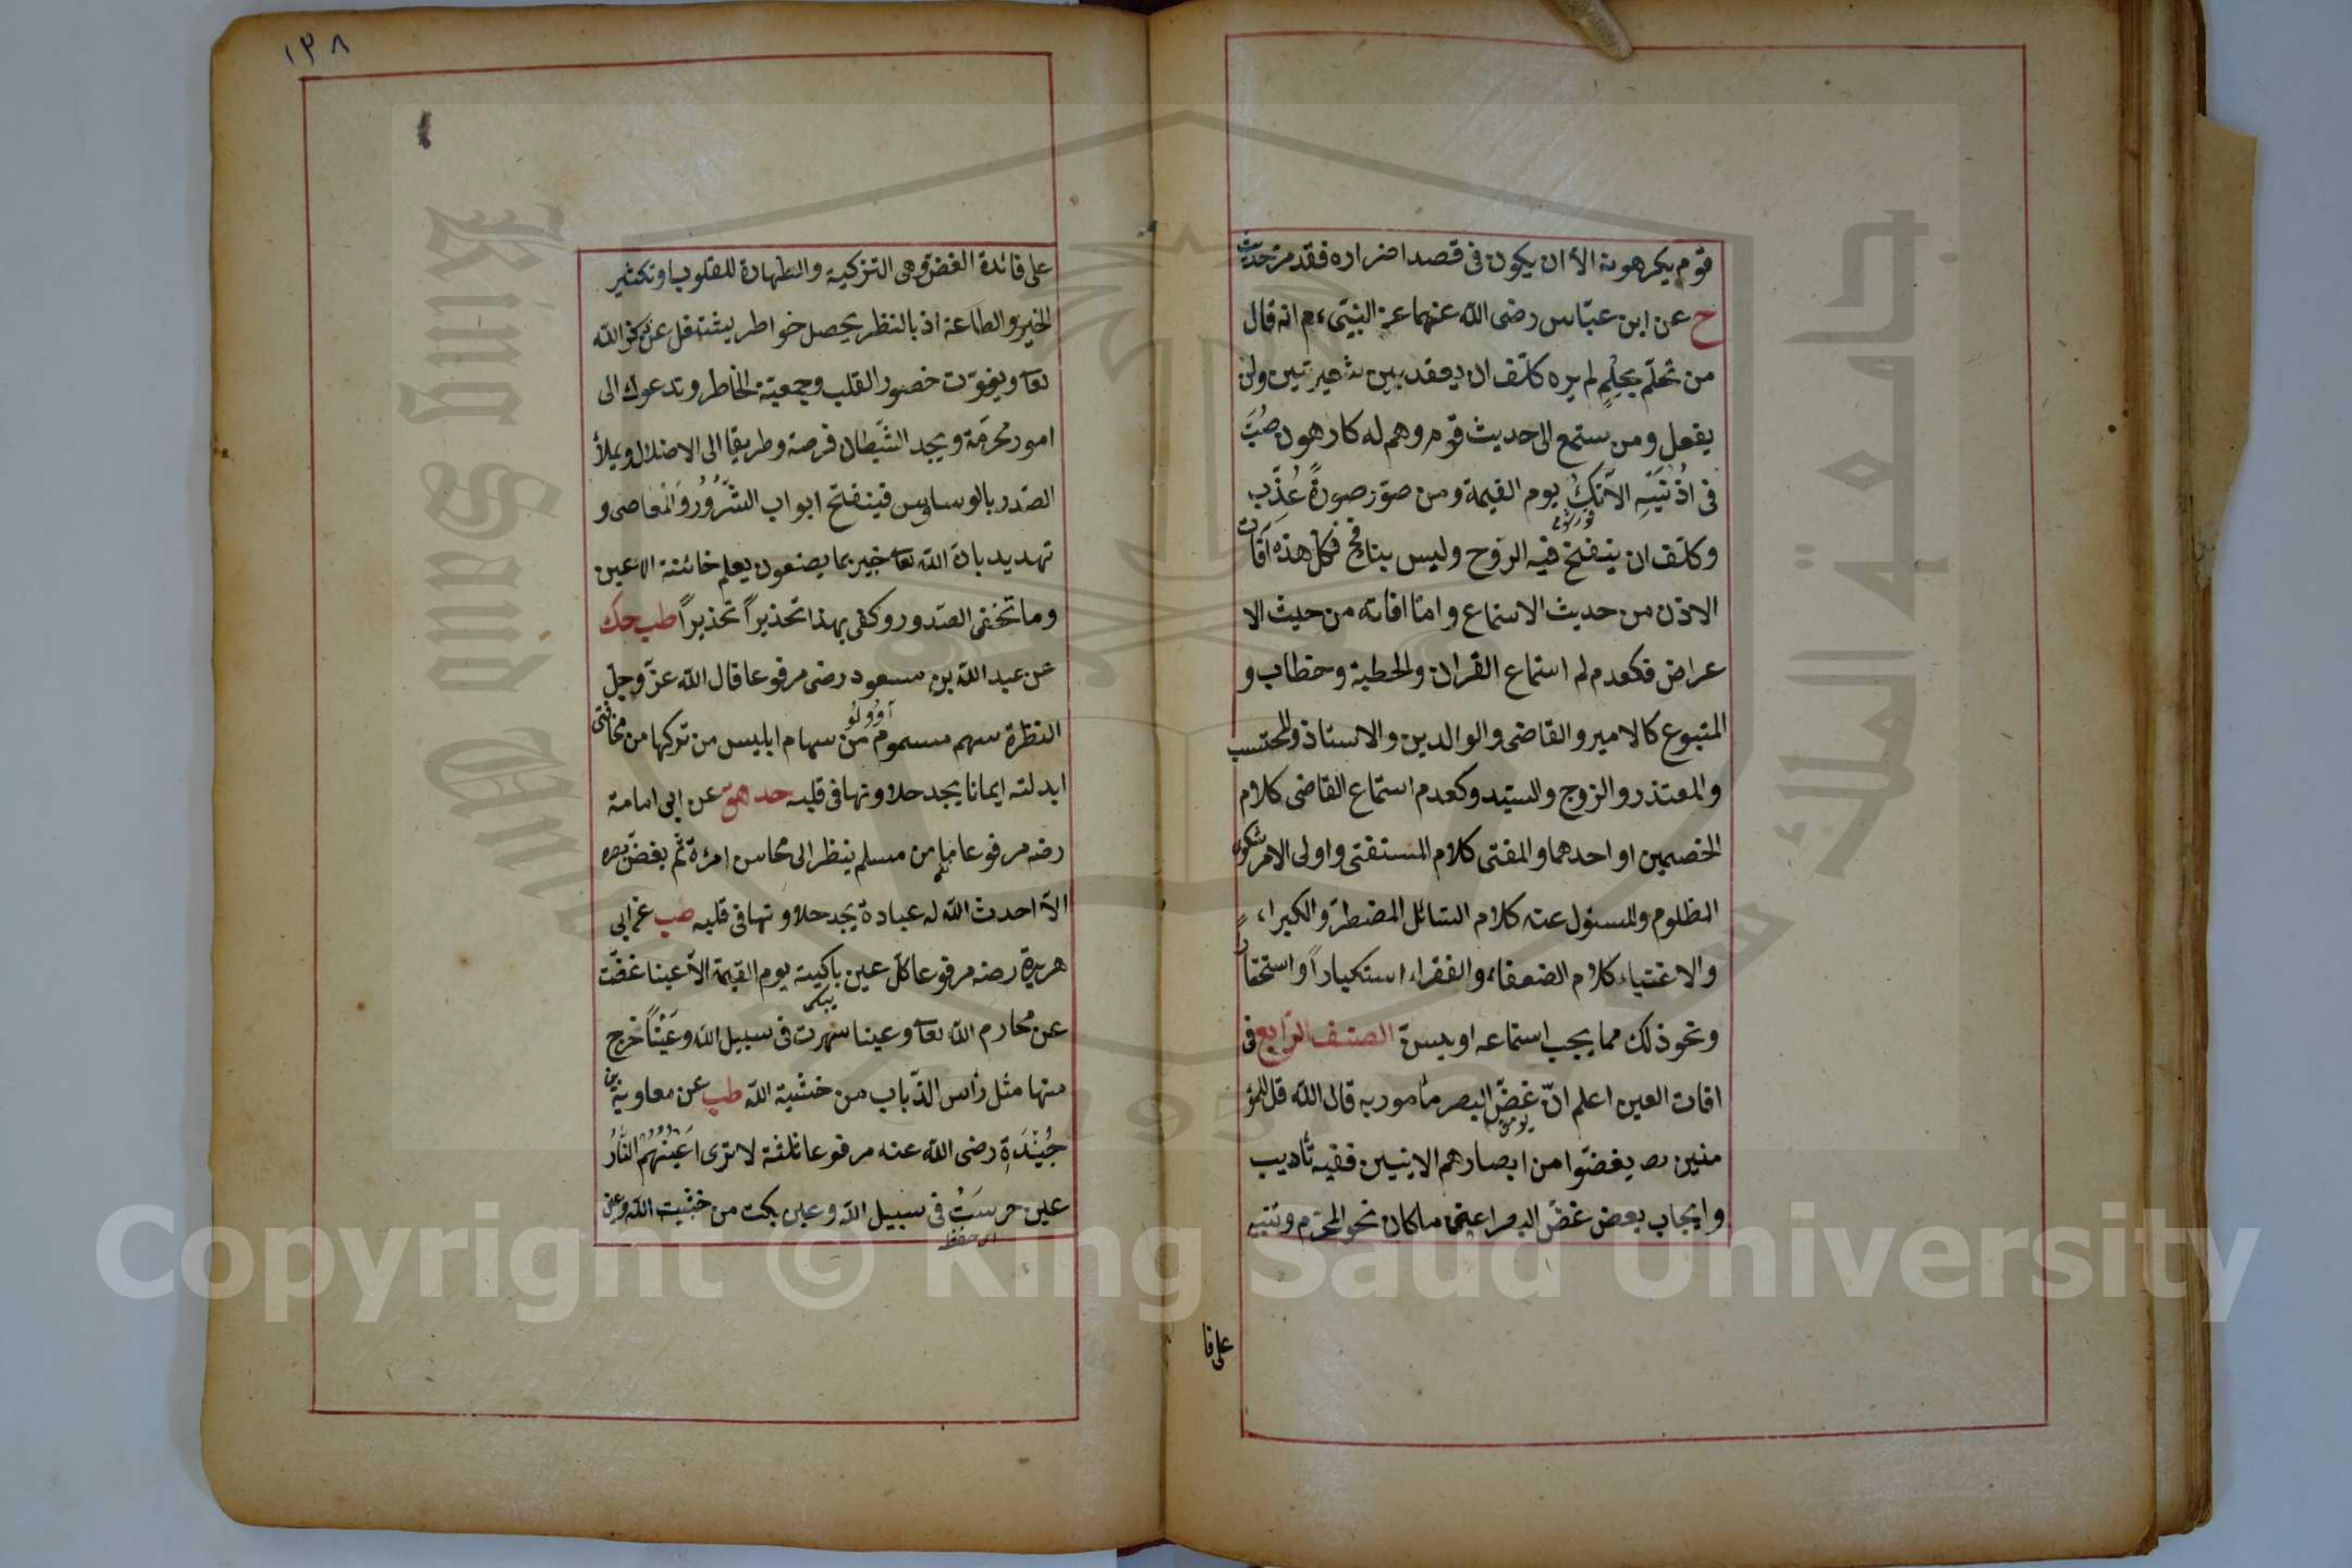 قوم يكرهونه الا ان يكون فى قصد اضراره فقد مر حديث
خ عن ابن عبّاس رضى الله عنهما عن النبىّ ءم انه قال
من تحلّم بحلم لم يره كلّف ان يعقد بين شعيرتين ولن
يفعل ومن ستمع الى حديث قوم وهم له كارهون صُبَّ
فى اذُنَيْهِ الآنك يوم القيمة ومن صوّر صورةً عُذِّب
وكلّف ان ينفخ فيه الروح وليس بنافخ فكل هذه آفات
الاذن من حديث الاستماع وامّا افاته من حيث الا
عراض فكعدم لم استماع القران والخطبة وخطاب و
المتبوع كالامير والقاضى والوالدين والاستاذ والمحتسب
والمعتذر والزوج والسيّد وكعدم استماع القاضى كلام
الخصمين او احدهما والمفتى كلام المستفتى واولى الامر شكوى
المظلوم والمسئول عنه كلام السّائل المضطرّ والكبراء
والاغنياء كلام الضعفاء والفقراء استكباراً واستحقاراً
ونحو ذلك مما يجب استماعه او يسنّ الصنف الرّابع فى
افات العين اعلم انّ غضّ البصر مأمور به قال الله قل للمؤ
منين يغضّوا من ابصارهم الايتين ففيه تأديب
وايجاب بعض غضّ البصر اعنى ما كان نحو المحرّم وتنبيه
على فا
١٣٨
على فائدة الغضّ وهى التزكية والطهارة للقلوب او تكثير
الخير والطاعة اذ بالنظر يحصل خواطر يشتغل عن ذكر الله
تعا ويفوّت حضور القلب وجمعيّة الخاطر وتدعوك الى
امور محرّمة ويجد الشّيطان فرصة وطريقا الى الاضلال ويملأ
الصّدر بالوساوس فينفتح ابواب الشّرُور والمعاصى و
تهديد بانّ الله تعا خبير بما يصنعون يعلم خائنة الاعين
وما تخفى الصّدور وكفى بهذا تحذيراً تحذيراً طب حك
عن عبد الله بن مسعود رضى مرفوعا قال الله عزّ وجل
النظرة سهم مسموم من سهام ابليس من تركها من مخافتى
ابدلته ايمانا يجد حلاوتها فى قلبه حد هق عن ابى امامة
رضه مرفوعا ما من مسلم ينظر الى محاسن امرءة ثم يغضّ بصره
الاّ احدث الله له عبادة يجد حلاوتها فى قلبه صب عن ابى
هريرة رضه مرفوعا كلّ عين باكية يوم القيمة الاّ عينا غضّت
عن محارم الله تعا وعينا سهرت فى سبيل الله وعَيْناً خرج
منها مثل رأس الذّباب من خشية الله طب عن معاوية بن
جُيْدَةِ رضى الله عنه مرفوعا ثلثة لا ترى اعَيْنُهُم النّارُ
عين حرسَتْ فى سبيل الله وعين بكت من خشيت الله وعين
اى حفظ
Copyright © King Saud University
King Saud University
جامعة الملك سعود
1957